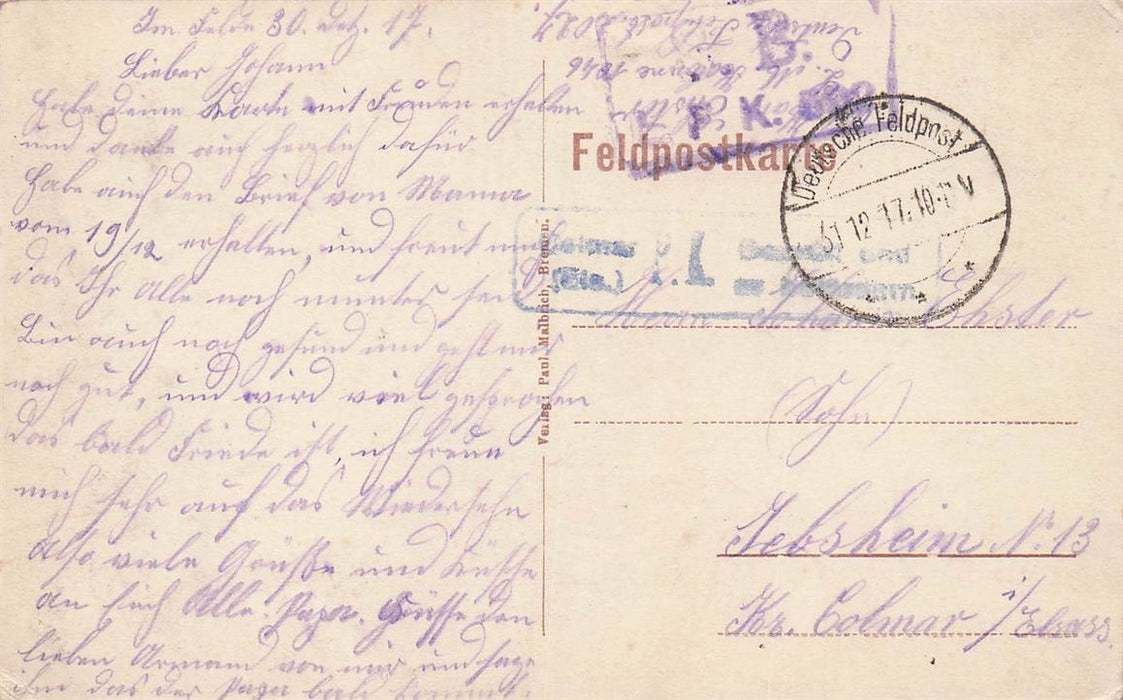 Im Felde 30. Dez. 17.
Lieber Johann
Habe deine Karte mit Freuden erhalten
und danke auch herzlich dafür
Habe auch den Brief von Mama
vom 19/12 erhalten, und freut mich
das Ihr Alle noch munter seid
Bin auch noch gesund und geht mir
noch gut, und wird viel gesprochen
das bald Friede ist, ich freue
mich sehr auf das Wiedersehn
Also viele Grüße und Küsse
an Euch Alle. Papa. Grüsse den
lieben Armand von mir und sage
ihm das der Papa bald kommt.
Deutsche Feldpost
B.
F. K.
Feldpostkarte
Deutsche Feldpost
31 12 17. 10-11 V
P.K.
Verlag: Paul Malbrich, Bremen.
Johann Ehster
(Sohn)
Jebsheim No. 13
Kr. Colmar i/Elsass.